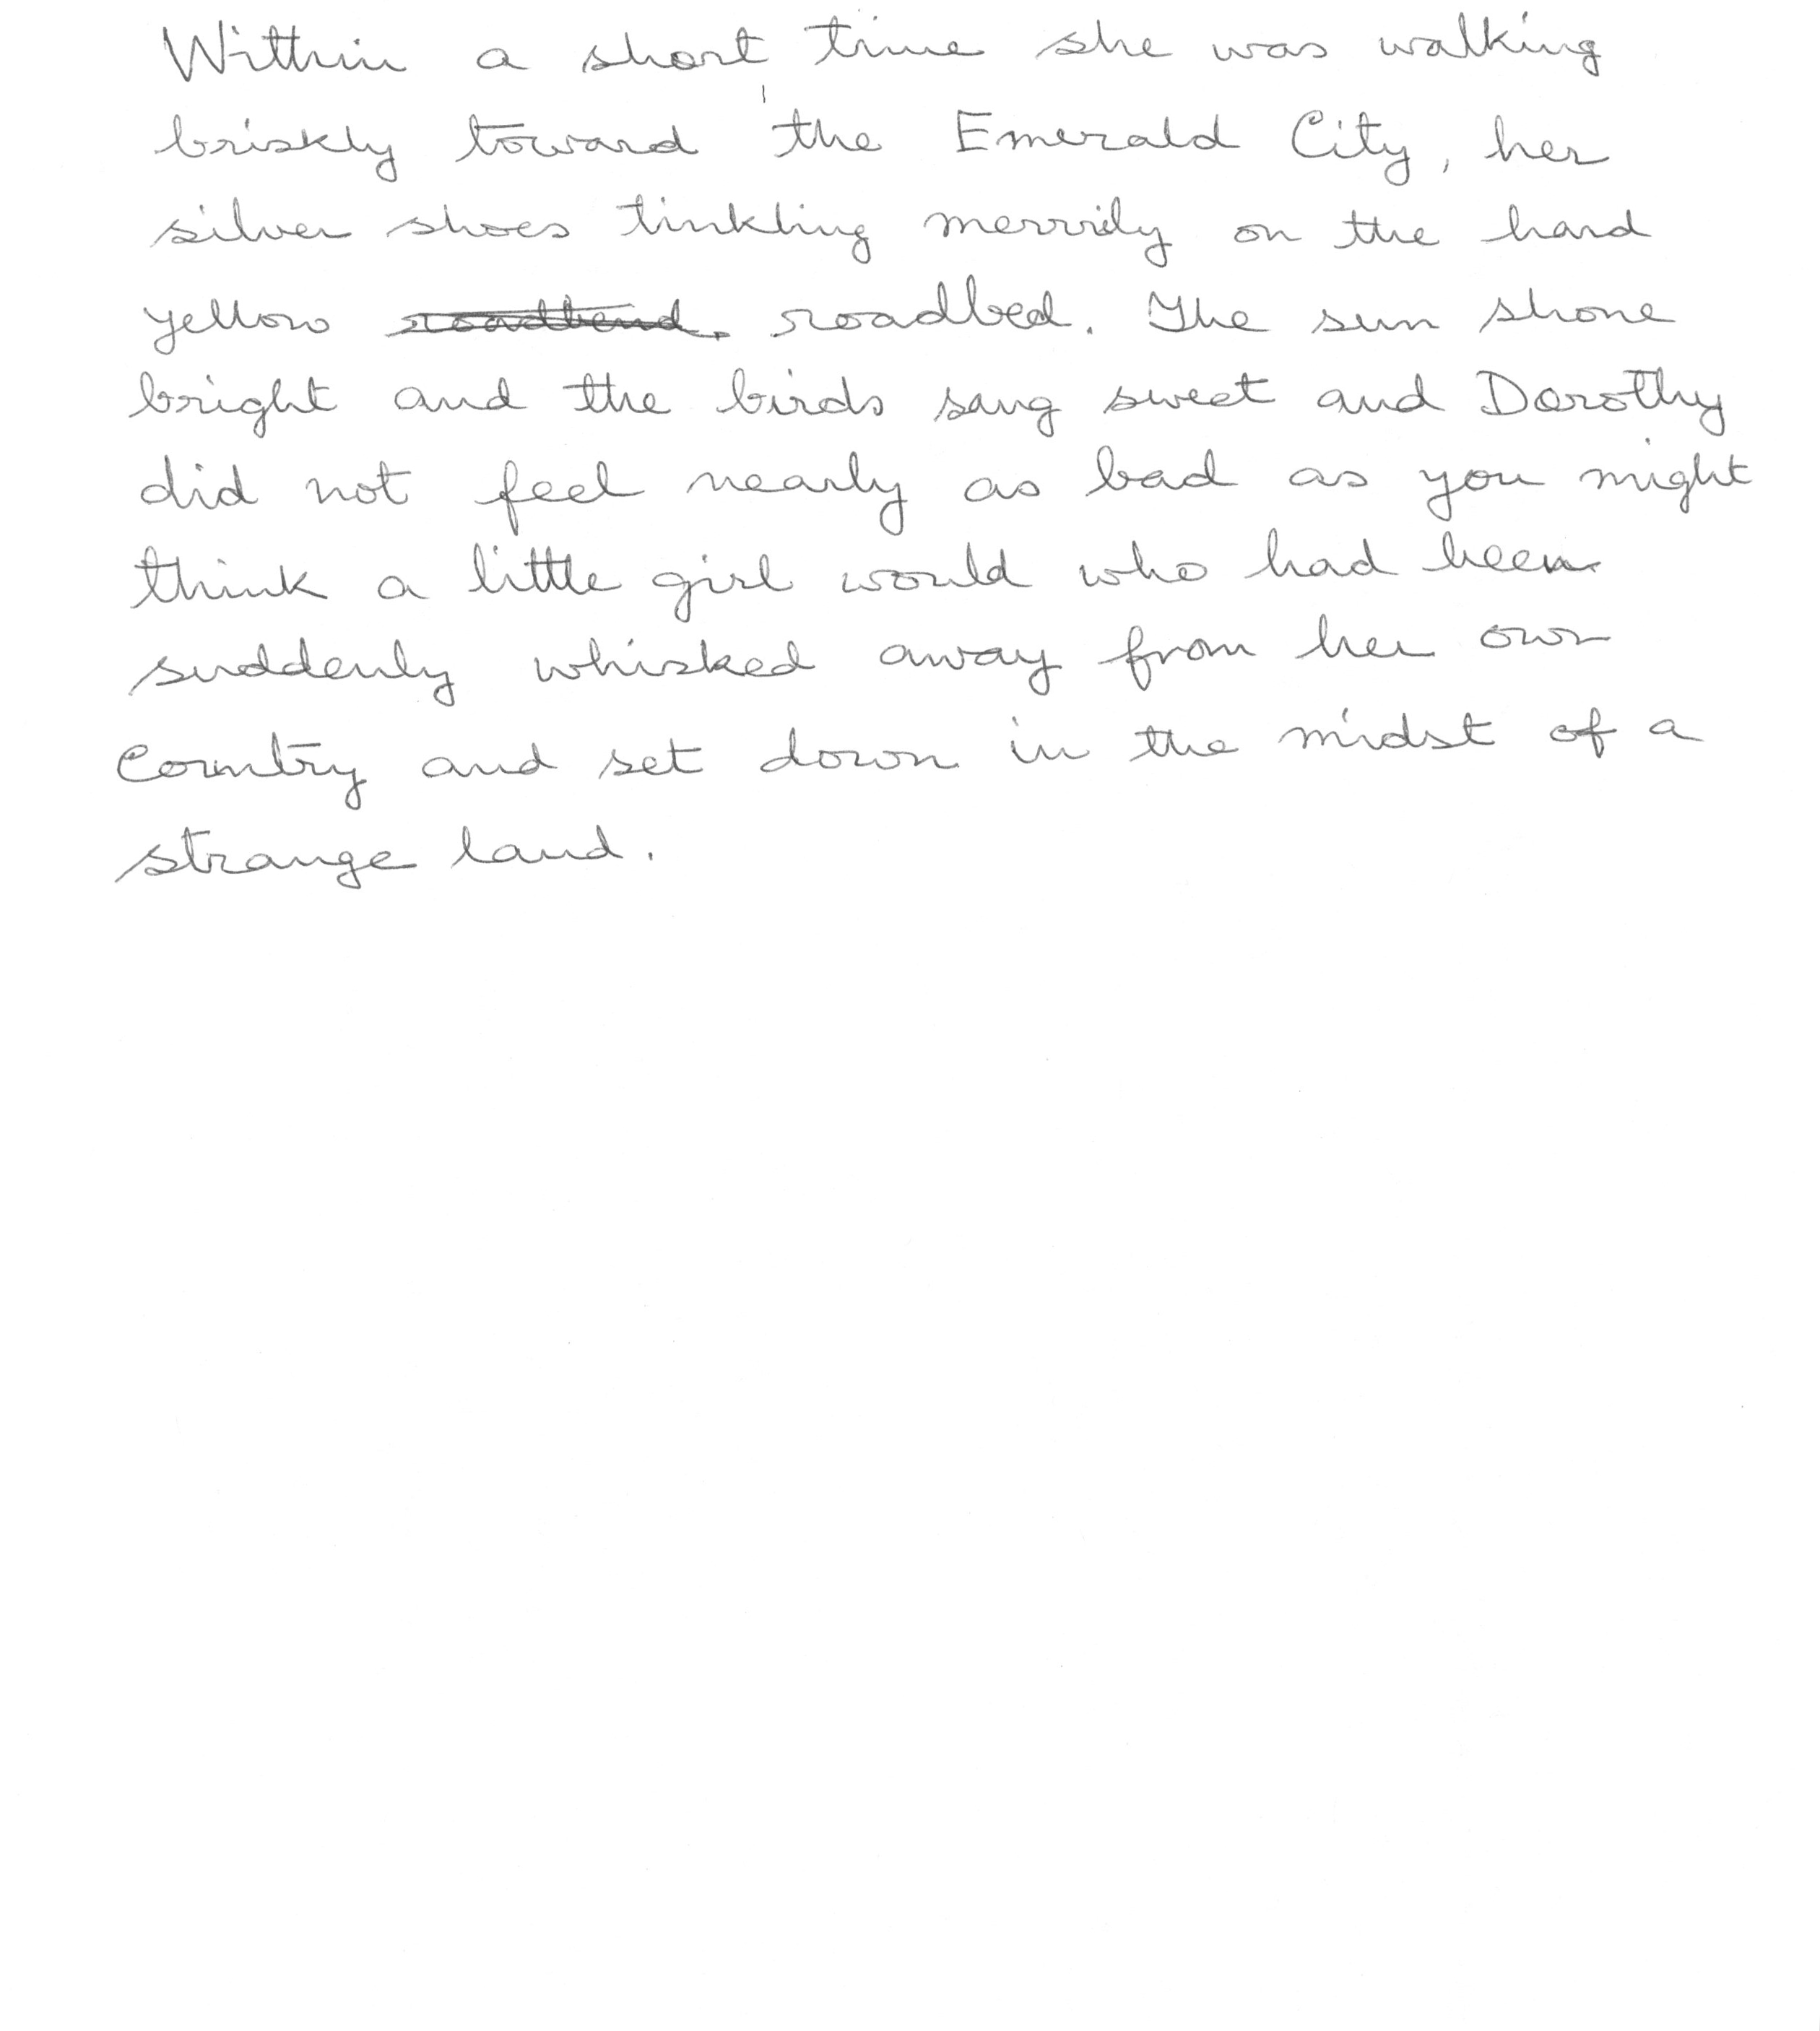 Within a short time she was walking
briskly toward the Emerald City, her
silver shoes tinkling merrily on the hard
yellow roadbed. The sun shone
bright and the birds sang sweet and Dorothy
did not feel nearly as bad as you might
think a little girl would who had been
suddenly whisked away from her own
Country and set down in the midst of a
strange land.